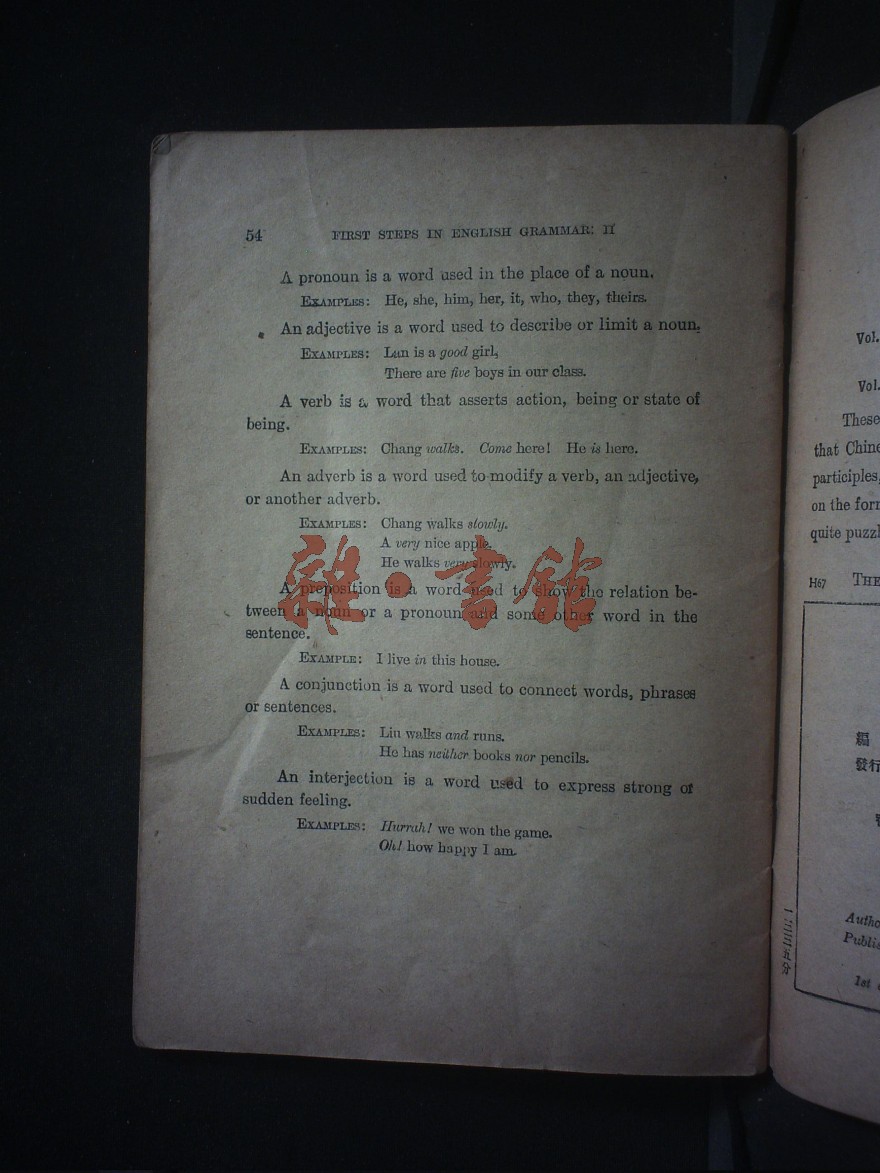 54 FIRST STEPS IN ENGLISH GRAMMAR: II
A pronoun is a word used in the place of a noun.
EXAMPLES: He, she, him, her, it, who, they, theirs.
An adjective is a word used to describe or limit a noun.
EXAMPLES: Lan is a good girl,
There are five boys in our class.
A verb is a word that asserts action, being or state of
being.
EXAMPLES: Chang walks. Come here! He is here.
An adverb is a word used to modify a verb, an adjective,
or another adverb.
EXAMPLES: Chang walks slowly.
A very nice apple.
He walks very slowly.
雜·書館
A preposition is a word used to show the relation be-
tween a noun or a pronoun and some other word in the
sentence.
EXAMPLE: I live in this house.
A conjunction is a word used to connect words, phrases
or sentences.
EXAMPLES: Liu walks and runs.
He has neither books nor pencils.
An interjection is a word used to express strong or
sudden feeling.
EXAMPLES: Hurrah! we won the game.
Oh! how happy I am.
Vol.
Vol.
These
that Chine
participles,
on the for
quite puzzl
H67 THE
編
發行
Autho
Publis
1st